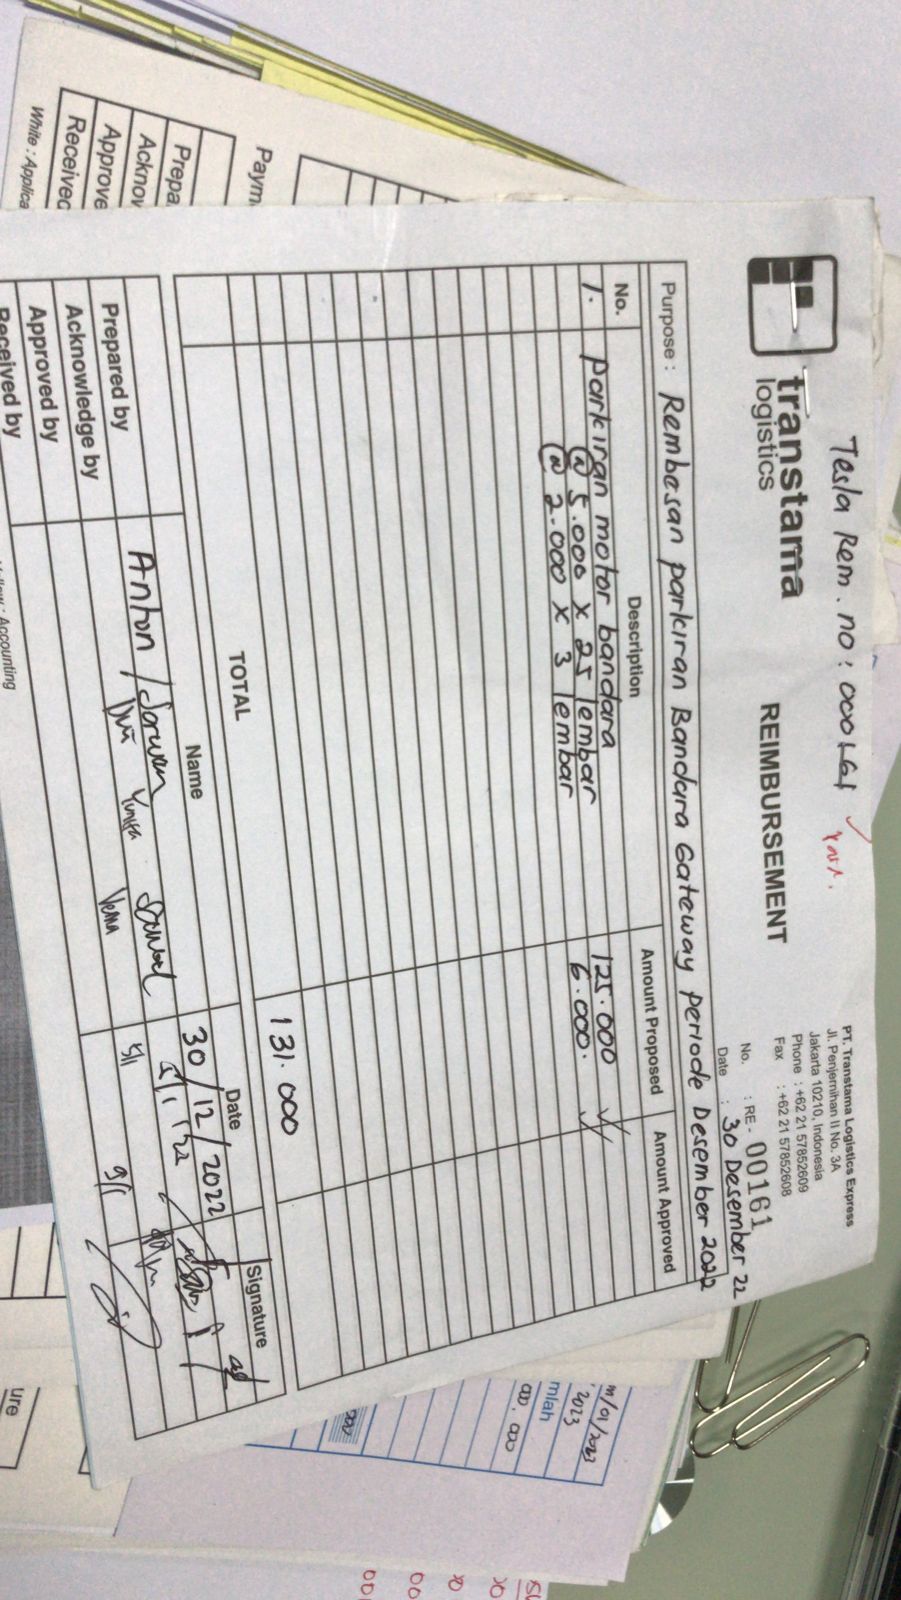 Tesla Rem. no:
transtama
logistics
REIMBURSEMENT
PT. Transtama Logistics Express
Jl. Penjernihan II No. 3A
Jakarta 10210, Indonesia
Phone : +62 21 57852609
Fax : +62 21 57852608
No. : RE - 00161
Date : 30 Desember 22
Purpose : Rembesan parkiran Bandara Gateway periode Desember 2022
No. Description Amount Proposed Amount Approved
1. parkiran motor bandara
@ 5.000 x 25 lembar 125.000
@ 2.000 x 3 lembar 6.000.
TOTAL 131.000
Name Date Signature
Prepared by Anton / 30/12/2022
Acknowledge by
Approved by 5/1
Received by 9/1
: Accounting
Paym
Prepa
Acknow
Approve
Received
White : Applica
m/01/2023
2023
mlah
00.000
000
ure
00
00